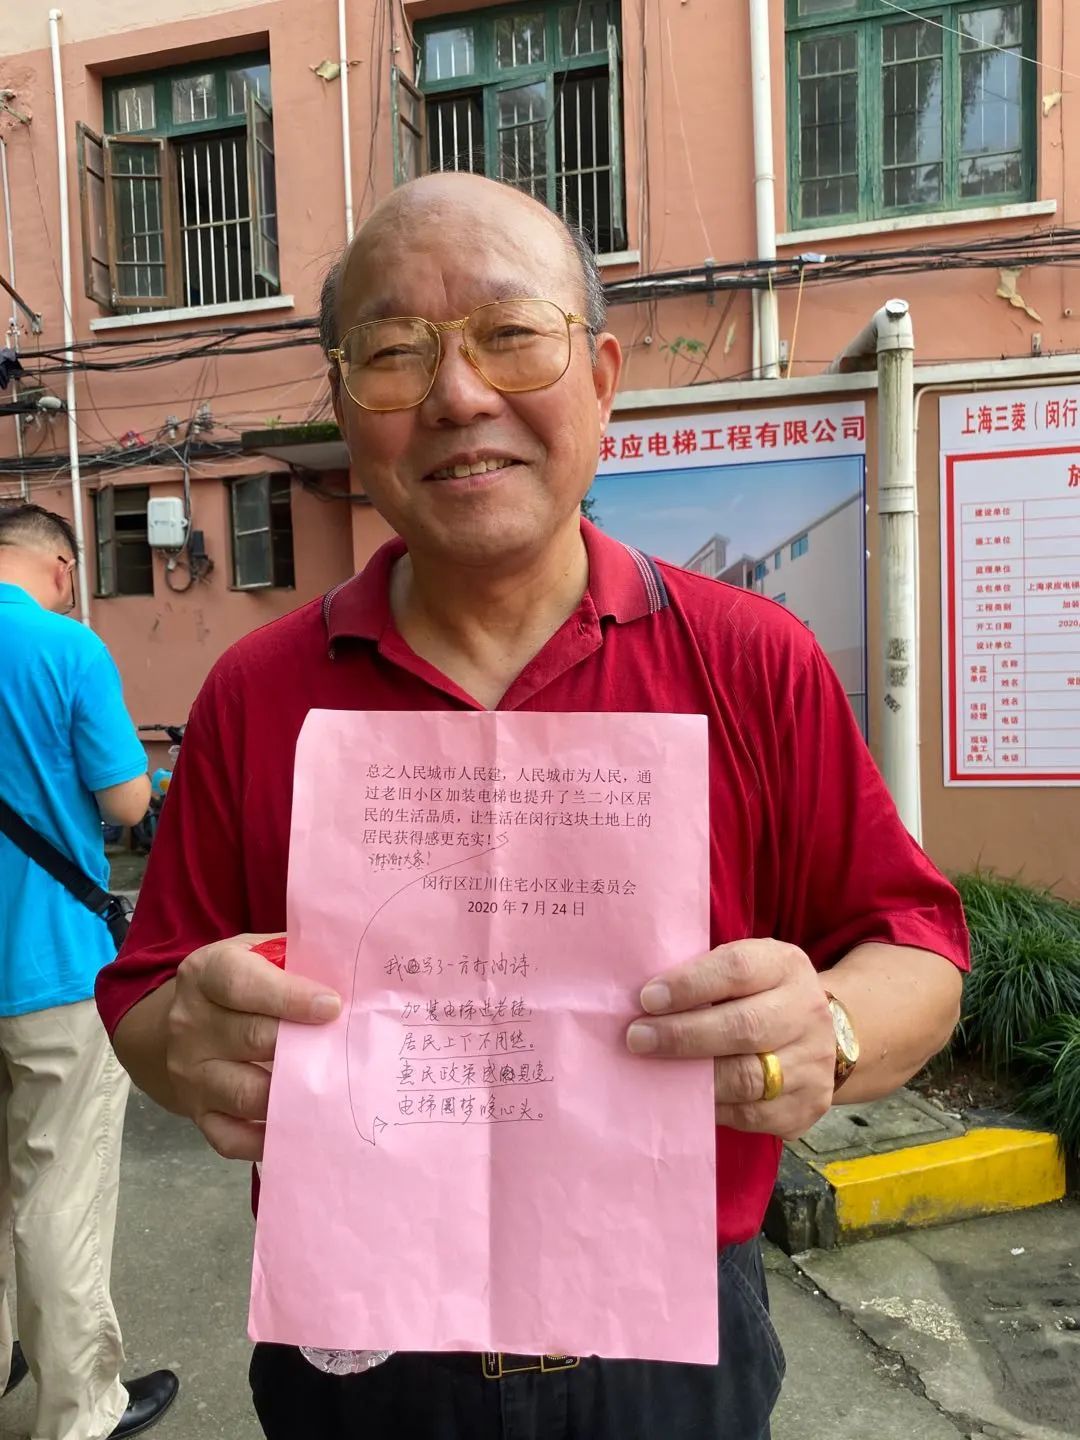 求应电梯工程有限公司
上海三菱（闵行
施
建设单位
施工单位
监理单位
总包单位 上海求应电梯
工程类别 加装
开工日期 2020
设计单位
受监单位 名称
姓名
项目经理 姓名
电话
现场施工负责人 姓名
电话
总之人民城市人民建，人民城市为人民，通
过老旧小区加装电梯也提升了兰二小区居
民的生活品质，让生活在闵行这块土地上的
居民获得感更充实！
谢谢大家！
闵行区江川住宅小区业主委员会
2020 年 7 月 24 日
我写了一首打油诗，
加装电梯进老楼，
居民上下不用愁。
惠民政策感
电梯圆梦暖心头。